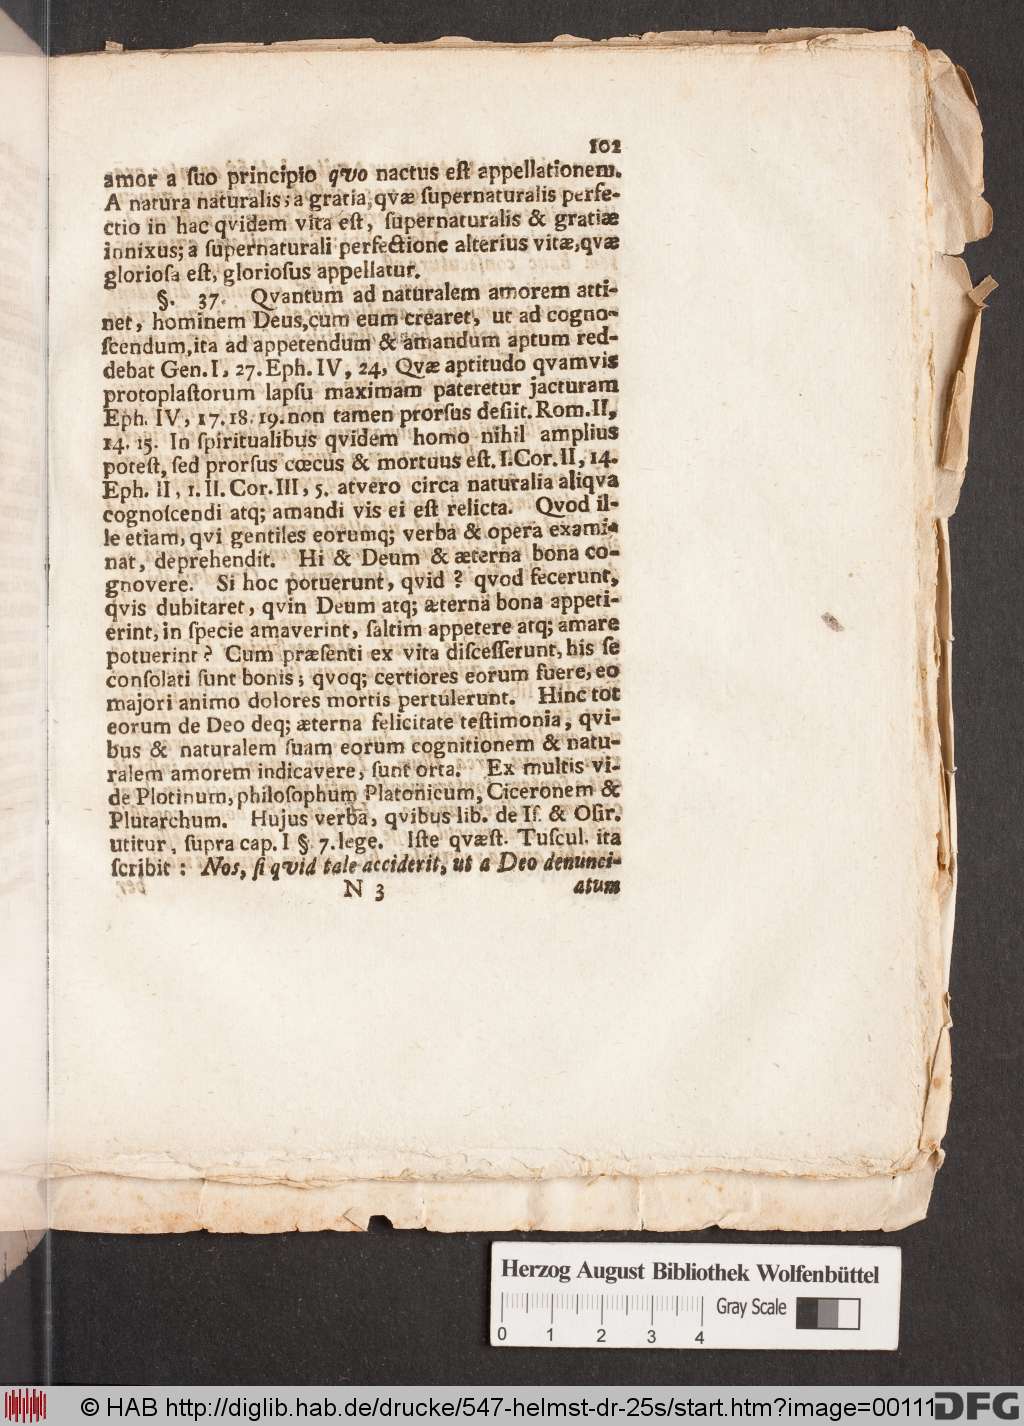 102
amor a ſuo principio qvo nactus eſt appellationem.
A natura naturalis; a gratia, qvæ ſupernaturalis perfe-
ctio in hac qvidem vita eſt, ſupernaturalis & gratiæ
innixus; a ſupernaturali perfectione alterius vitæ, qvæ
glorioſa eſt, glorioſus appellatur.
§. 37. Qvantum ad naturalem amorem atti-
net, hominem Deus, cum eum crearet, ut ad cogno-
ſcendum, ita ad appetendum & amandum aptum red-
debat Gen. I, 27. Eph. IV, 24, Qvæ aptitudo qvamvis
protoplaſtorum lapſu maximam pateretur jacturam
Eph. IV, 17. 18. 19. non tamen prorſus deſiit. Rom. II,
14. 15. In ſpiritualibus qvidem homo nihil amplius
poteſt, ſed prorſus cœcus & mortuus eſt. I. Cor. II, 14.
Eph. II, 1. II. Cor. III, 5. atvero circa naturalia aliqva
cognoſcendi atq; amandi vis ei eſt relicta. Qvod il-
le etiam, qvi gentiles eorumq; verba & opera exami-
nat, deprehendit. Hi & Deum & æterna bona co-
gnovere. Si hoc potuerunt, qvid ? qvod fecerunt,
qvis dubitaret, qvin Deum atq; æterna bona appeti-
erint, in ſpecie amaverint, ſaltim appetere atq; amare
potuerint ? Cum præſenti ex vita diſceſſerunt, his ſe
conſolati ſunt bonis; qvoq; certiores eorum fuere, eo
majori animo dolores mortis pertulerunt. Hinc tot
eorum de Deo deq; æterna felicitate teſtimonia, qvi-
bus & naturalem ſuam eorum cognitionem & natu-
ralem amorem indicavere, ſunt orta. Ex multis vi-
de Plotinum, philoſophum Platonicum, Ciceronem &
Plutarchum. Hujus verba, qvibus lib. de Iſ. & Oſir.
utitur, ſupra cap. I §. 7. lege. Iſte qvæſt. Tuſcul. ita
ſcribit : Nos, ſi qvid tale acciderit, ut a Deo denunci-
N 3 atum
Herzog August Bibliothek Wolfenbüttel
Gray Scale
0 1 2 3 4
© HAB http://diglib.hab.de/drucke/547-helmst-dr-25s/start.htm?image=00111
DFG